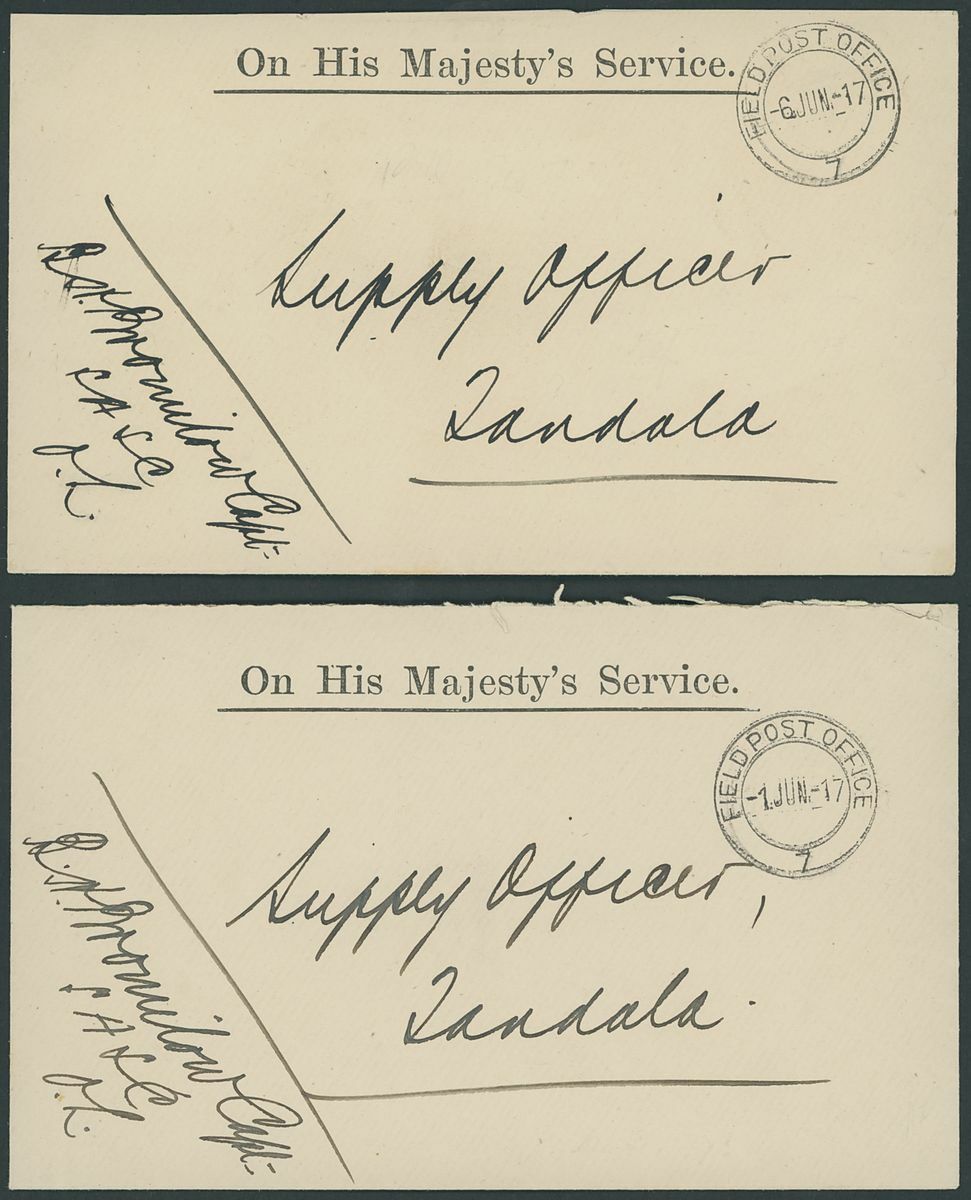 On His Majesty's Service.
FIELD POST OFFICE
-6 JUN.-17
7
Supply Officer
Tandala
R. H. Bromilow Capt:
S A S C
O.C.
On His Majesty's Service.
FIELD POST OFFICE
-1 JUN.-17
7
Supply Officer,
Tandala.
R. H. Bromilow Capt:
S A S C
O.C.